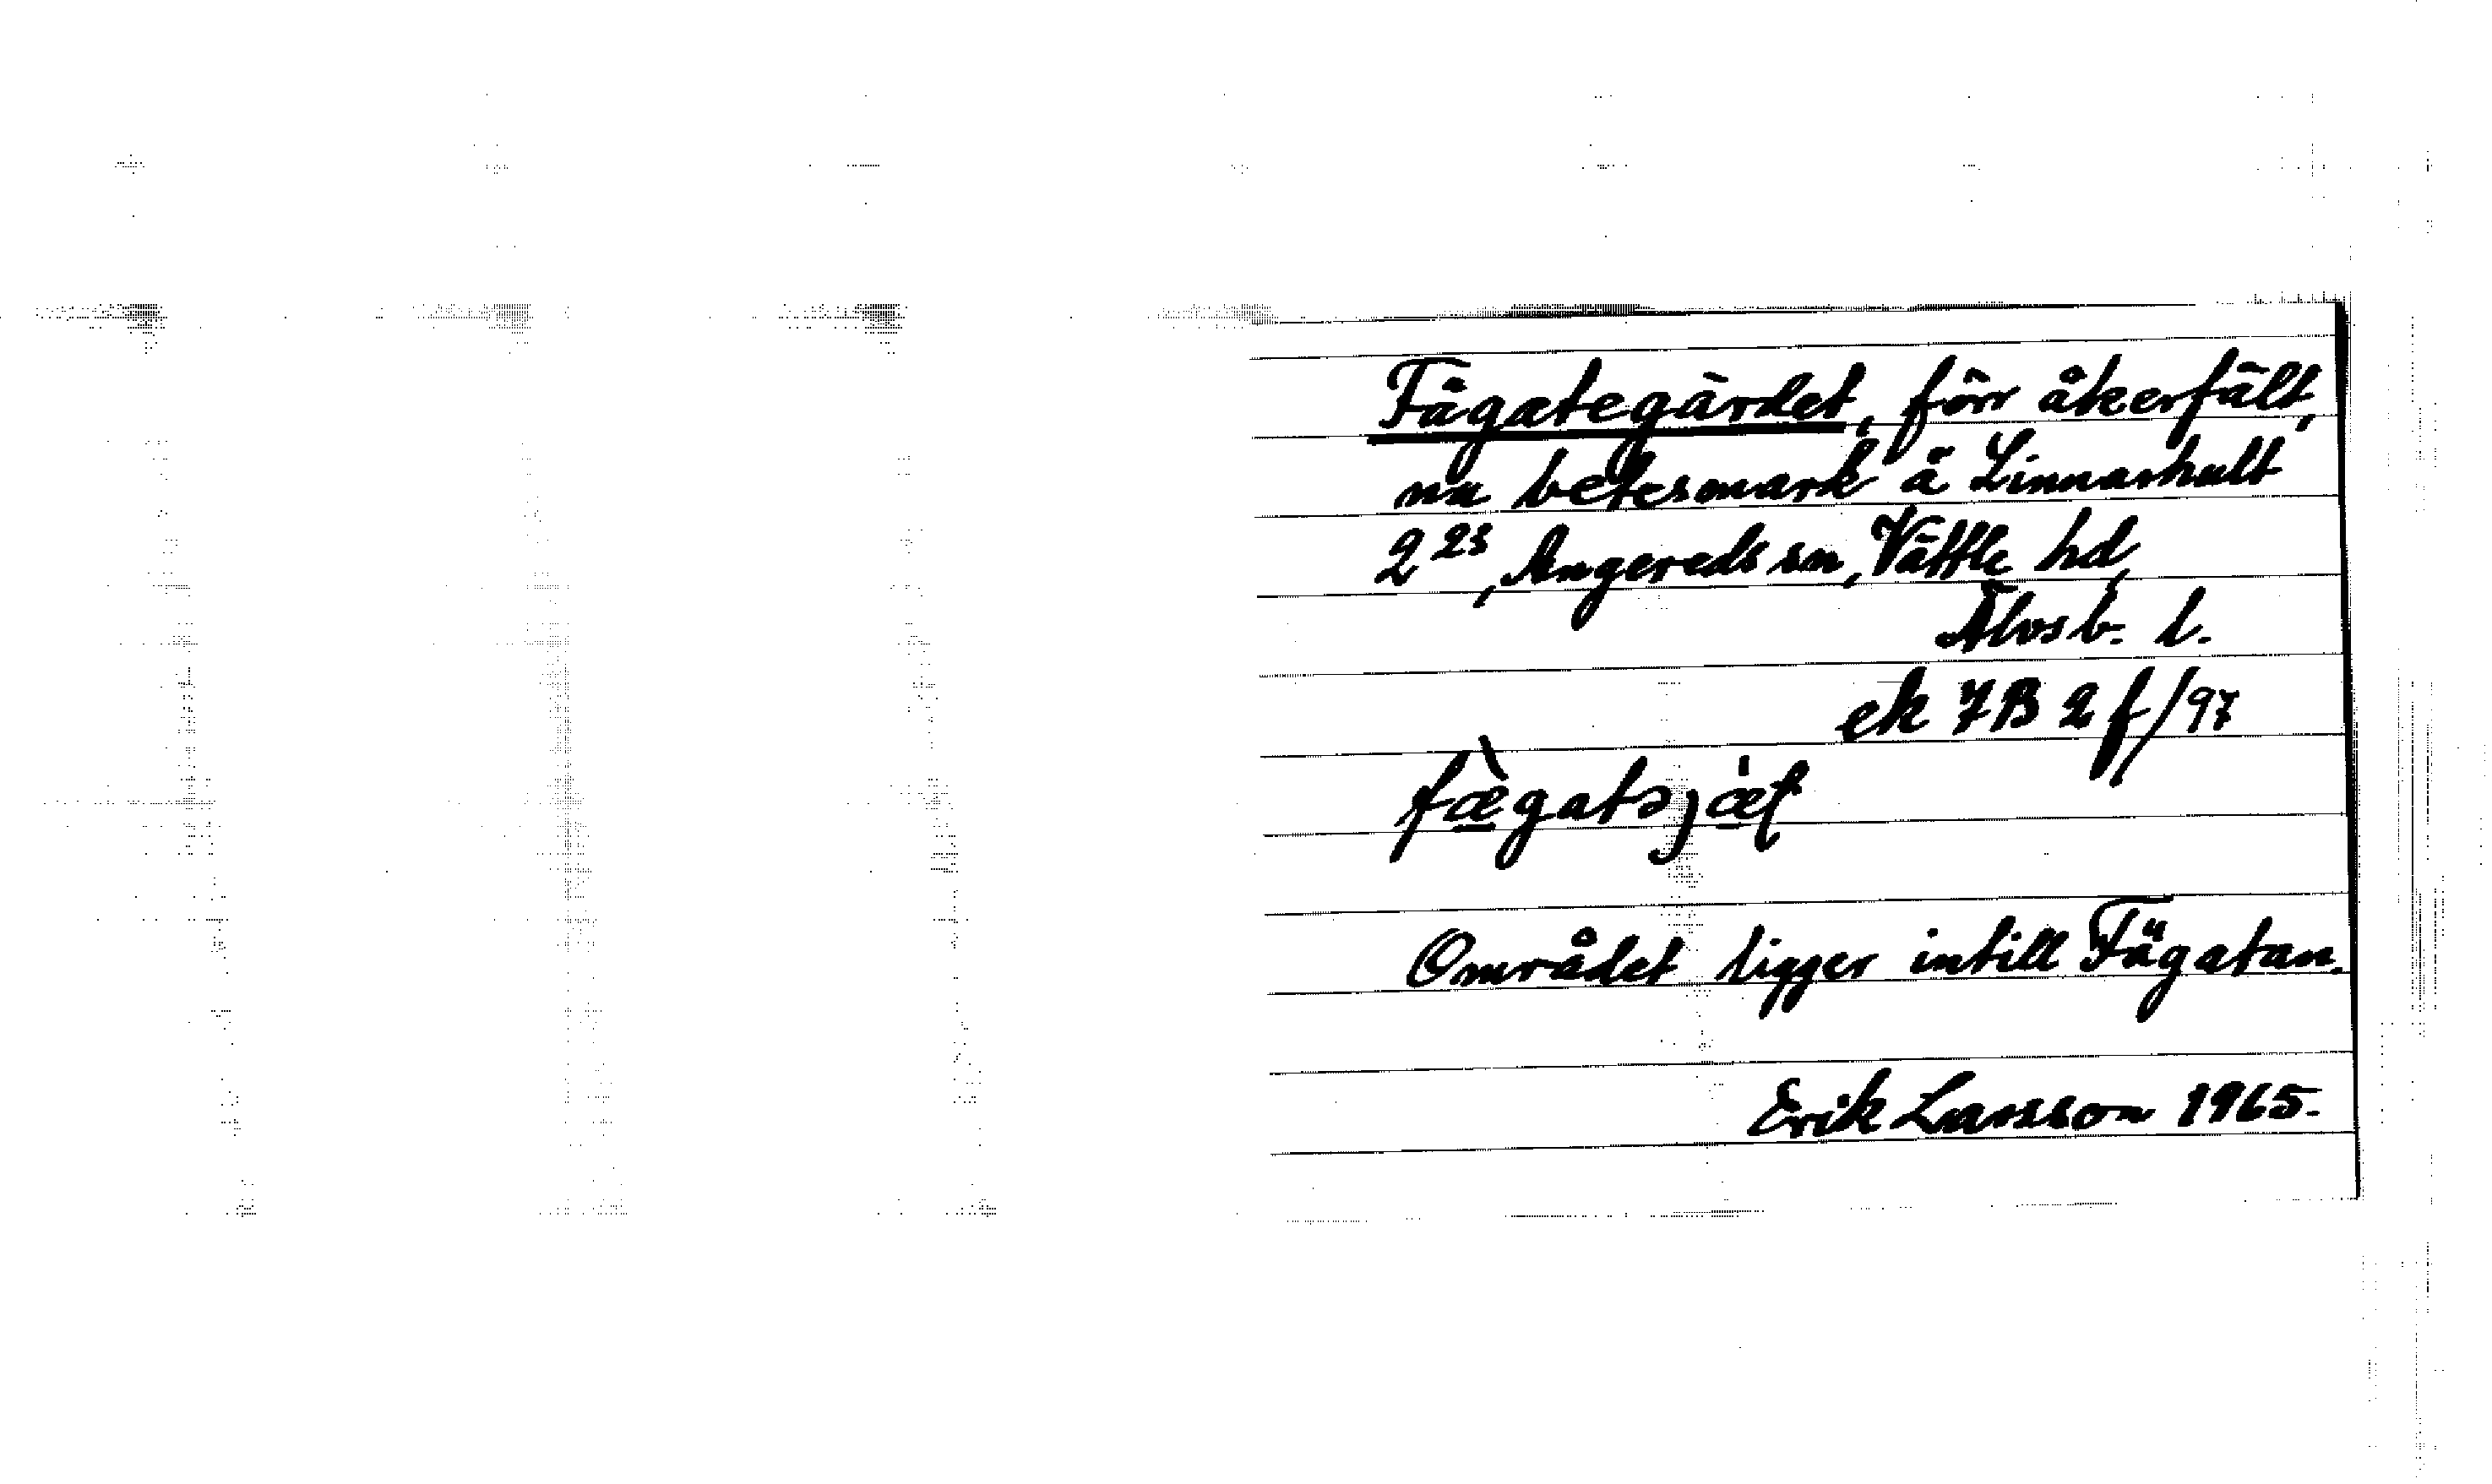 Fägategärdet, förr åkerfält,
nu betesmark å Linnarhult
2²³, Angereds sn, Vättle hd,
Älvsb. l.
ek 7B 2 f/97
Området ligger intill Fägatan.
Erik Larsson 1965.